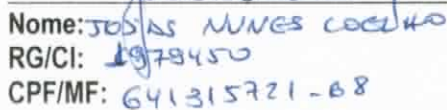 Nome: JOSIAS NUNES COELHO
RG/CI: 1979450
CPF/MF: 641315721-68